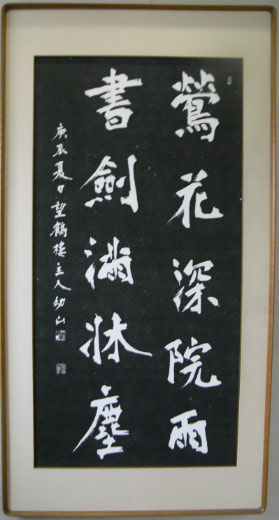 鶯花深院雨
書劍滿牀塵
庚辰夏日望鶴樓主人幼山